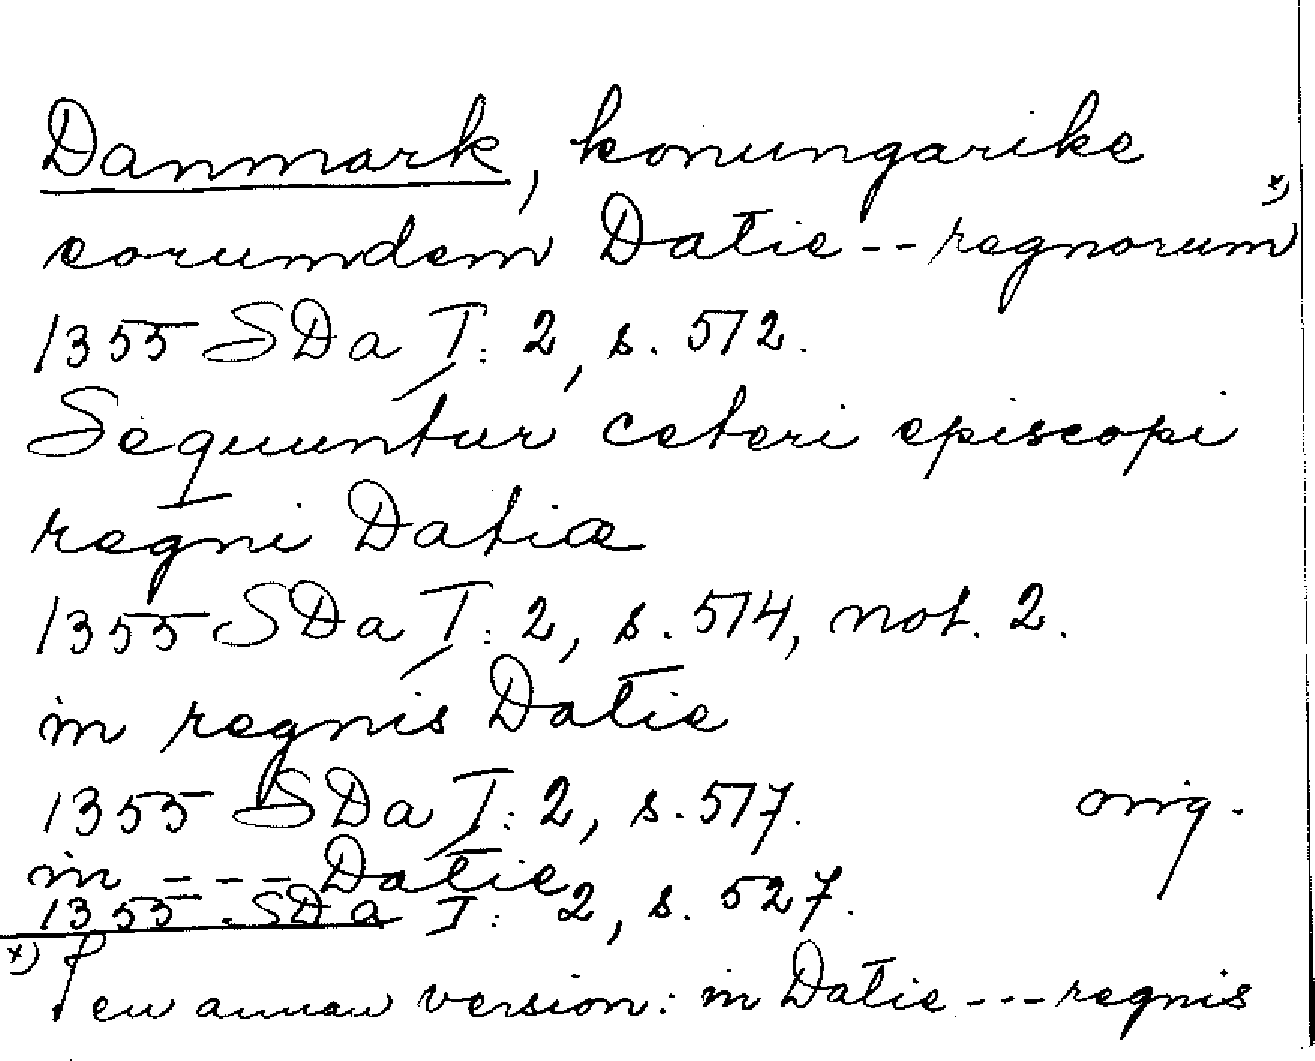 Danmark, konungarike
eorumdem Datie -- regnorum x)
1355 SDa I: 2, s. 512.
Sequuntur ceteri episcopi
regni Datiæ
1355 SDa I: 2, s. 514, not. 2.
in regnis Datie
1355 SDa I: 2, s. 517. orig.
in --- Datie
1355 SDa I: 2, s. 527.
x) I en annan version: in Datie --- regnis